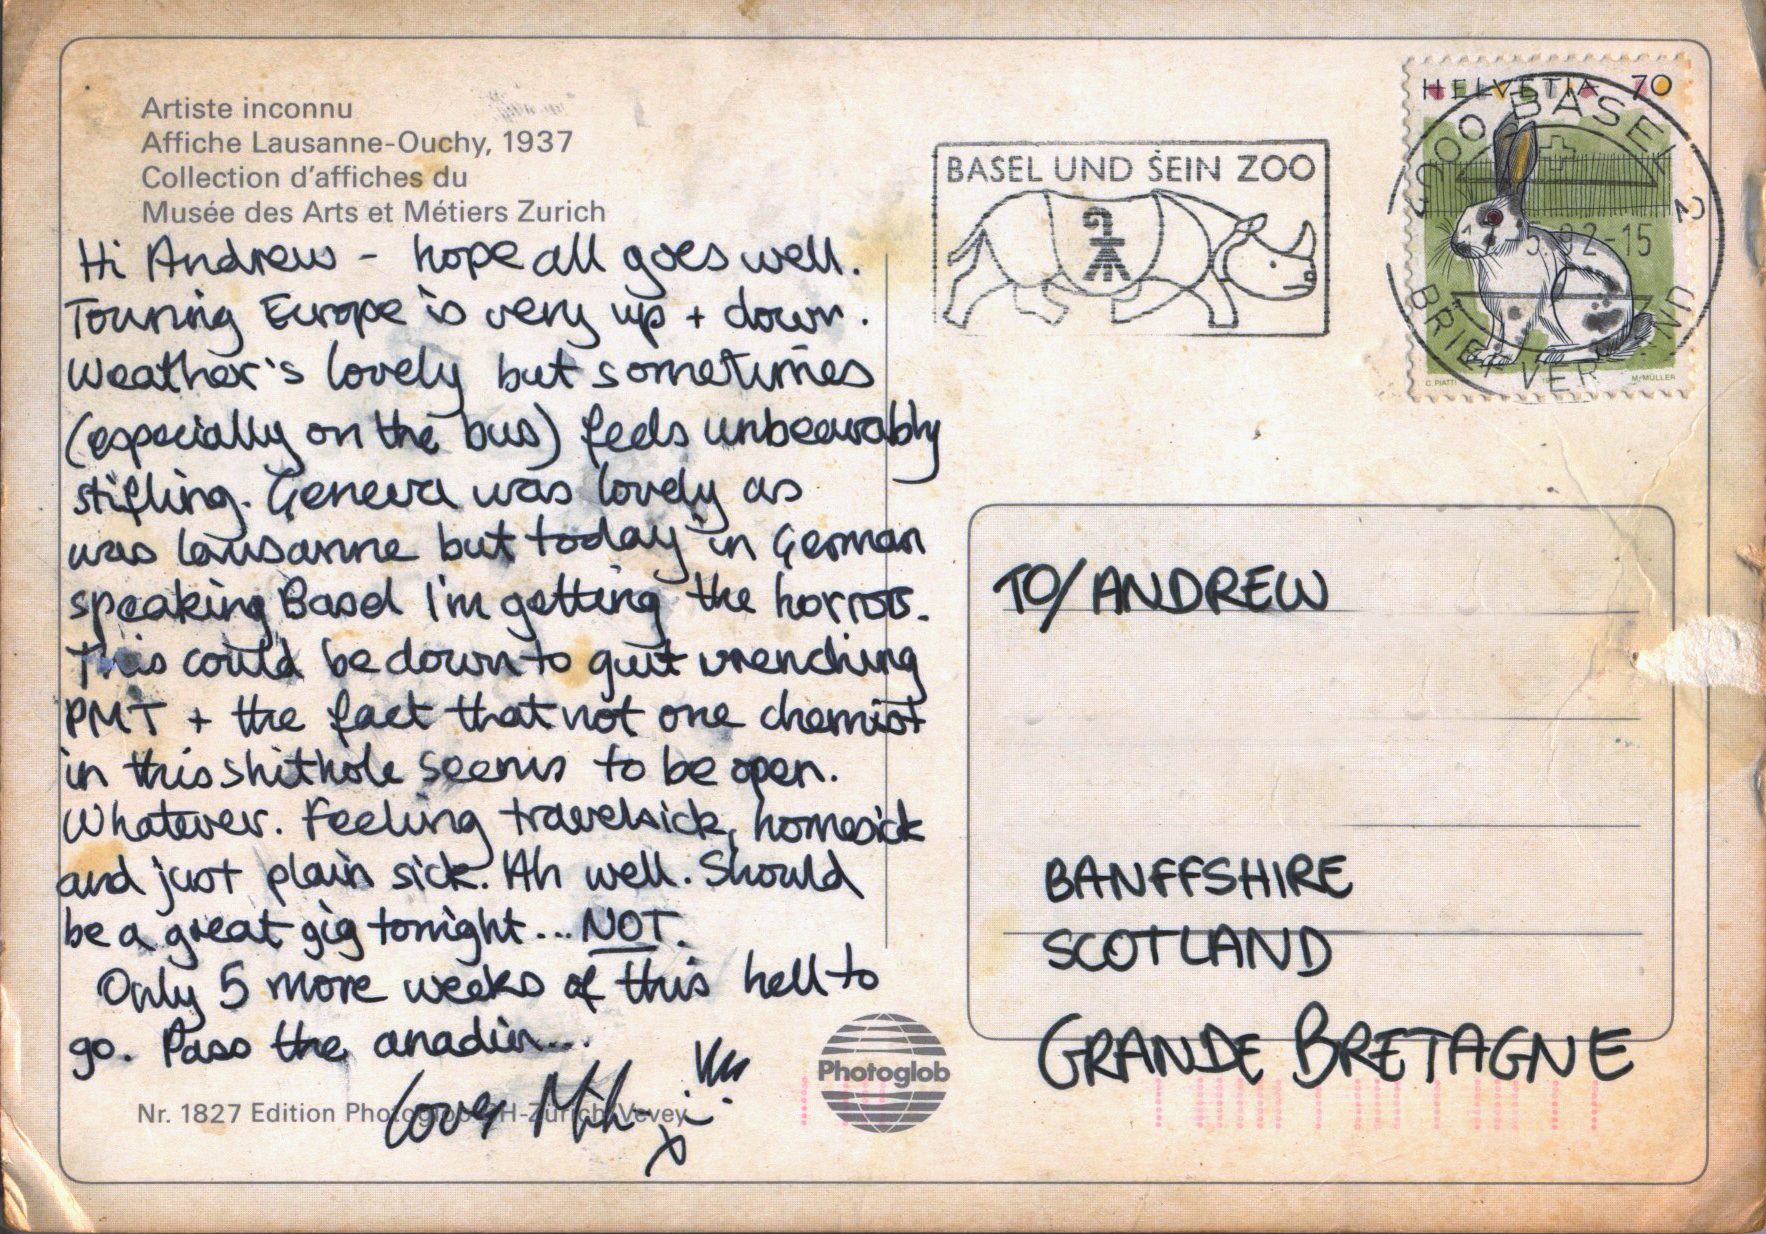 Artiste inconnu
Affiche Lausanne-Ouchy, 1937
Collection d'affiches du
Musée des Arts et Métiers Zurich
Hi Andrew - hope all goes well.
Touring Europe is very up + down.
Weather's lovely but sometimes
(especially on the bus) feels unbearably
stifling. Geneva was lovely as
was Lausanne but today in German
speaking Basel I'm getting the horrors.
This could be down to gut wrenching
PMT + the fact that not one chemist
in this shithole seems to be open.
Whatever. Feeling travelsick, homesick
and just plain sick. Ah well. Should
be a great gig tonight... NOT.
Only 5 more weeks of this hell to
go. Pass the anadin...
Love,
x
Nr. 1827 Edition Photoglob CH-Zürich/Vevey
Photoglob
BASEL UND SEIN ZOO
HELVETIA 70
BASEL 2
C. PIATTI
M. MÜLLER
TO/ ANDREW
BANFFSHIRE
SCOTLAND
GRANDE BRETAGNE